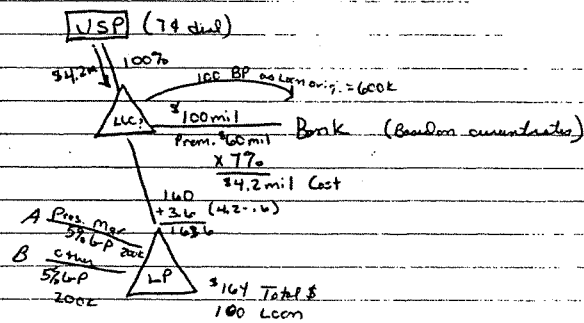 USP (7¢ deal)
$4.2m 100%
100 BP as Loan orig. = 600k
LLC,
$100mil Bank (Based on current rates)
Prem. $60mil
x 7%
$4.2mil Cost
160
+3.6 (4.2-.6)
163.6
A Pres. Mgr
5% GP 200k
B Other
5% GP
200k
LP
$164 Total $
100 Loan